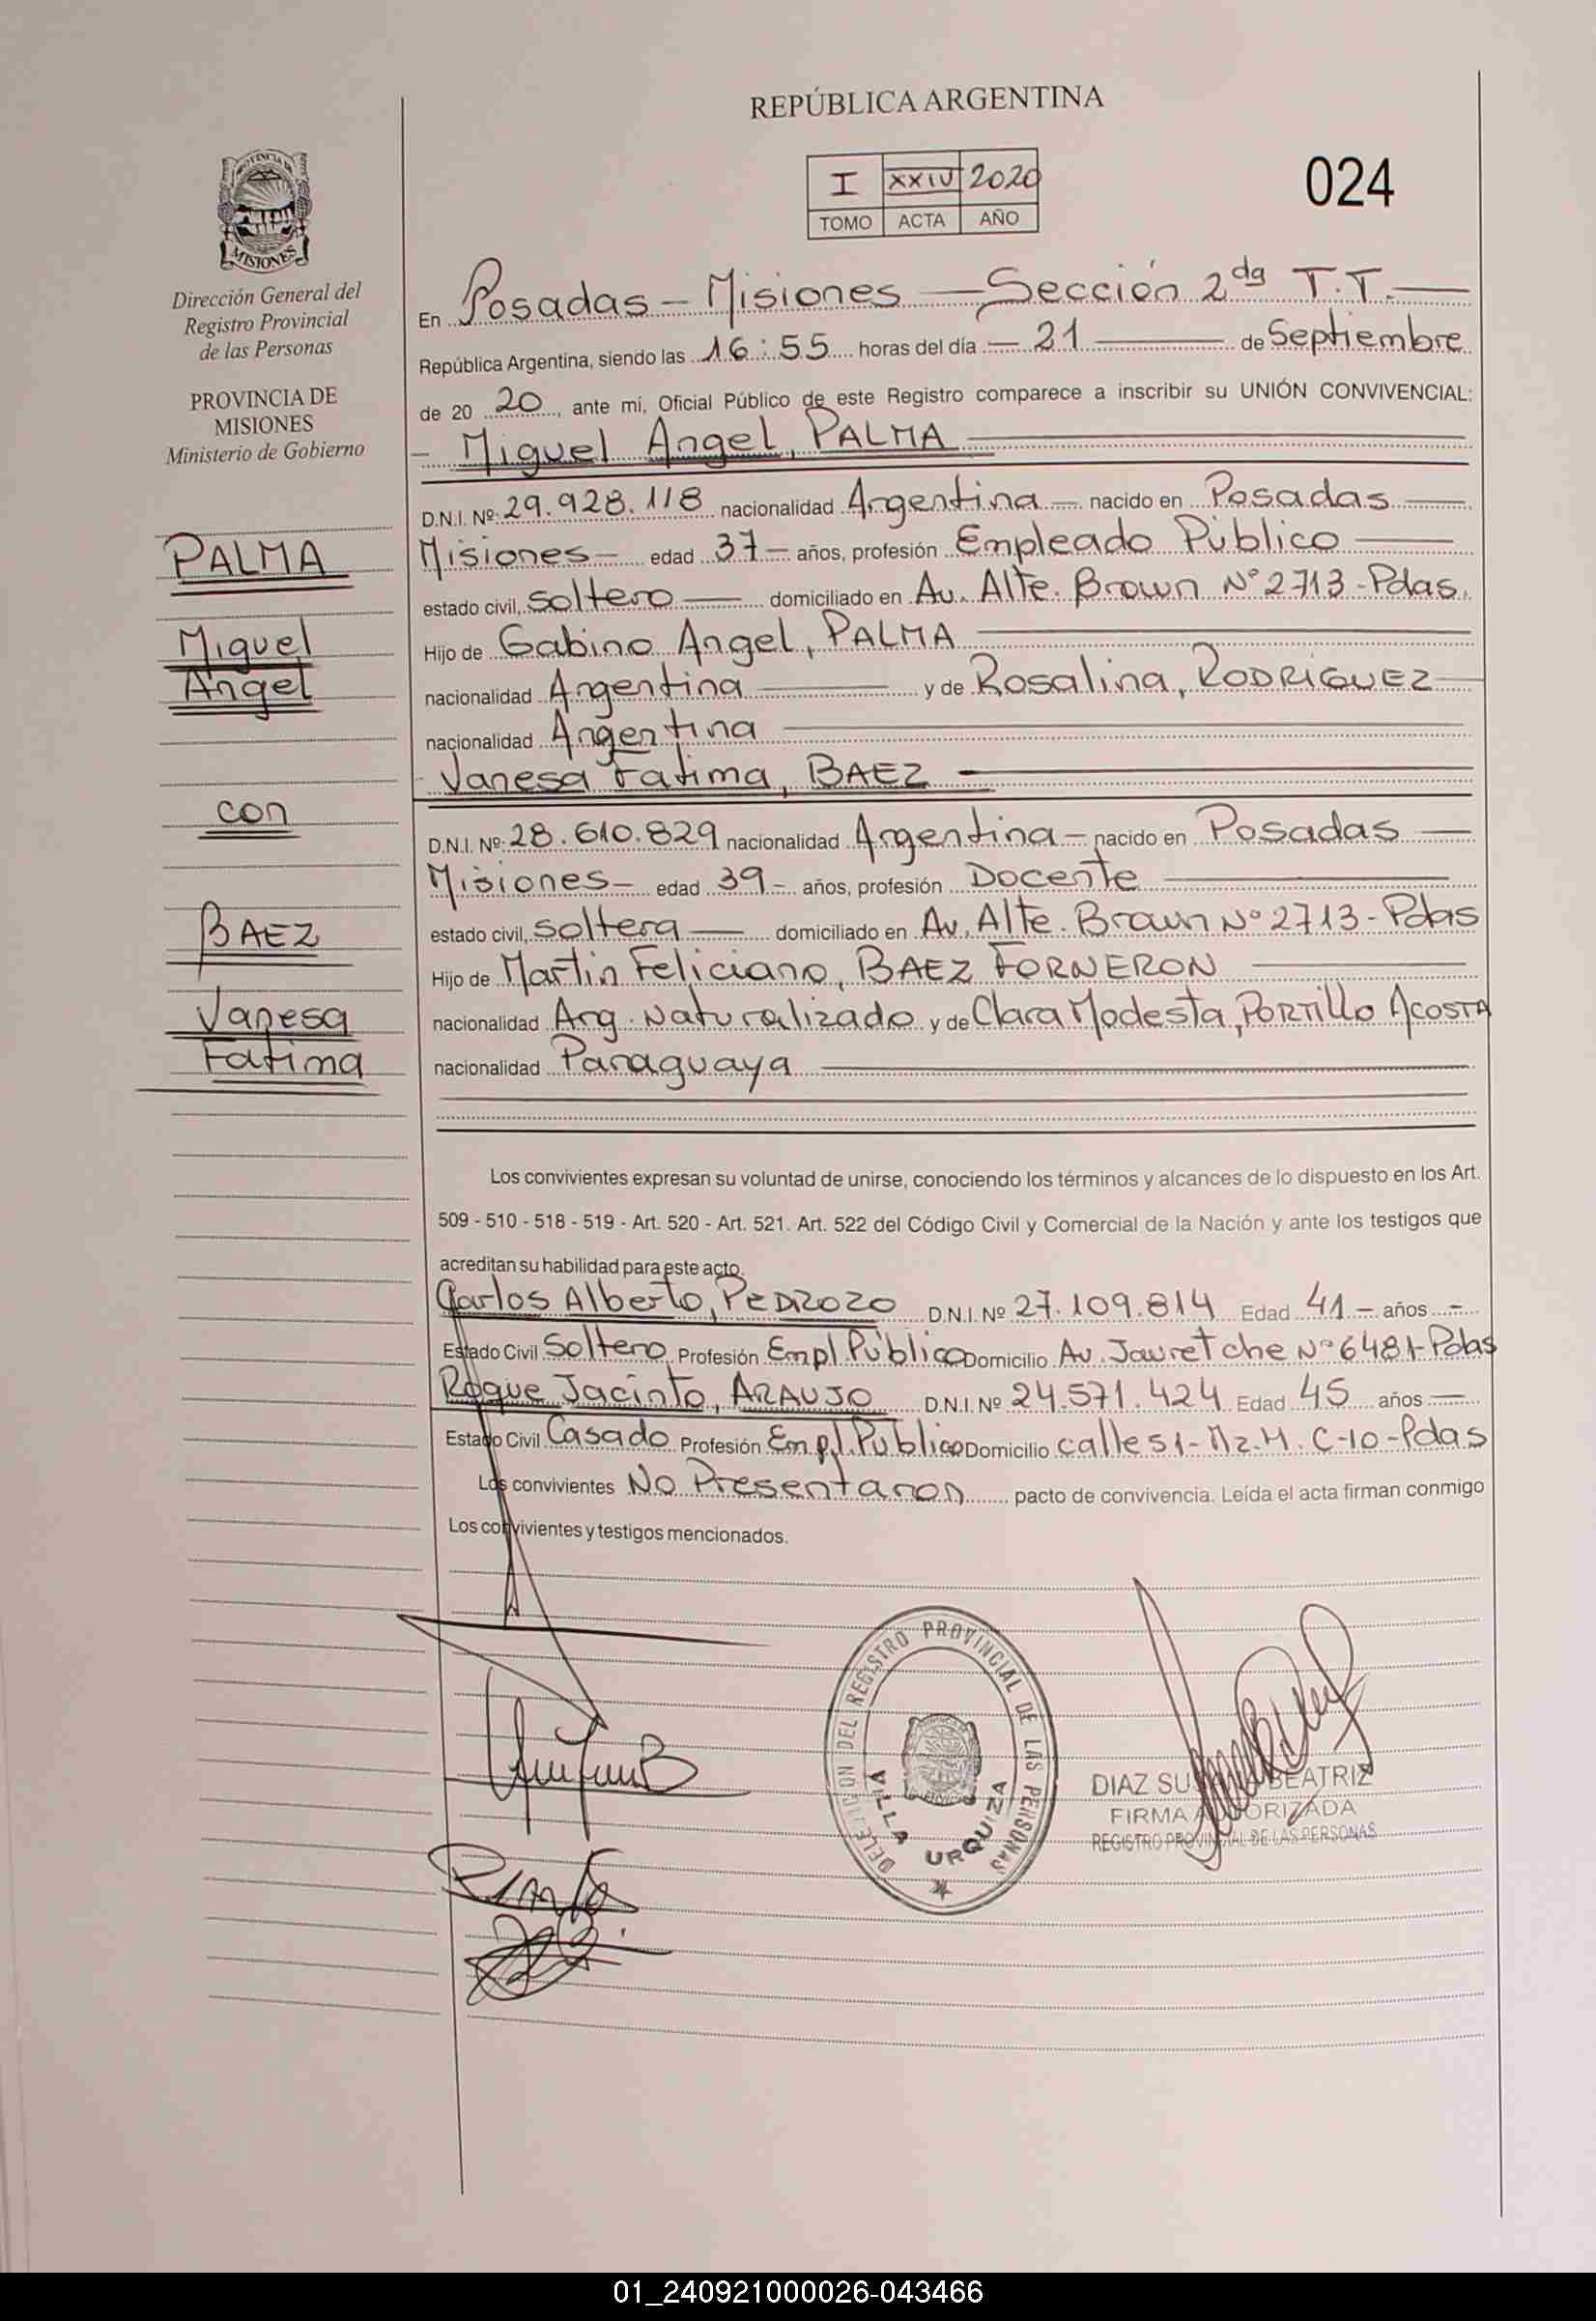 REPÚBLICA ARGENTINA
I XXIV 2020
TOMO ACTA AÑO
024
PROVINCIA DE
MISIONES
Dirección General del
Registro Provincial
de las Personas
PROVINCIA DE
MISIONES
Ministerio de Gobierno
PALMA
Miguel
Angel
con
BAEZ
Vanesa
Fatima
En Posadas - Misiones - Sección 2da T.T.
República Argentina, siendo las 16:55 horas del día 21 de Septiembre
de 20 20, ante mí, Oficial Público de este Registro comparece a inscribir su UNIÓN CONVIVENCIAL:
- Miguel Angel, PALMA
D.N.I. Nº 29.928.118 nacionalidad Argentina - nacido en Posadas
Misiones - edad 37 - años, profesión Empleado Público
estado civil, soltero domiciliado en Av. Alte. Brown Nº 2713 - Pdas.
Hijo de Gabino Angel, PALMA
nacionalidad Argentina y de Rosalina, RODRIGUEZ
nacionalidad Argentina
- Vanesa Fatima, BAEZ
D.N.I. Nº 28.610.829 nacionalidad Argentina - nacido en Posadas
Misiones - edad 39 - años, profesión Docente
estado civil, soltera domiciliado en Av. Alte. Brown Nº 2713 - Pdas
Hijo de Martin Feliciano, BAEZ FORNERON
nacionalidad Arg. Naturalizado y de Clara Modesta, PORTILLO ACOSTA
nacionalidad Paraguaya
Los convivientes expresan su voluntad de unirse, conociendo los términos y alcances de lo dispuesto en los Art.
509 - 510 - 518 - 519 - Art. 520 - Art. 521. Art. 522 del Código Civil y Comercial de la Nación y ante los testigos que
acreditan su habilidad para este acto.
Carlos Alberto, PEDROZO D.N.I. Nº 27.109.814 Edad 41 - años -
Estado Civil Soltero Profesión Empl. Público Domicilio Av. Jauretche Nº 6481-Pdas
Roque Jacinto, ARAUJO D.N.I. Nº 24.571.424 Edad 45 años
Estado Civil Casado Profesión Empl. Público Domicilio calle 51 - Mz. M. C-10 - Pdas
Los convivientes No Presentaron pacto de convivencia. Leída el acta firman conmigo
Los convivientes y testigos mencionados.
DELEGACION DEL REGISTRO PROVINCIAL DE LAS PERSONAS
VILLA URQUIZA
DIAZ SUSANA BEATRIZ
FIRMA AUTORIZADA
REGISTRO PROVINCIAL DE LAS PERSONAS
01_240921000026-043466